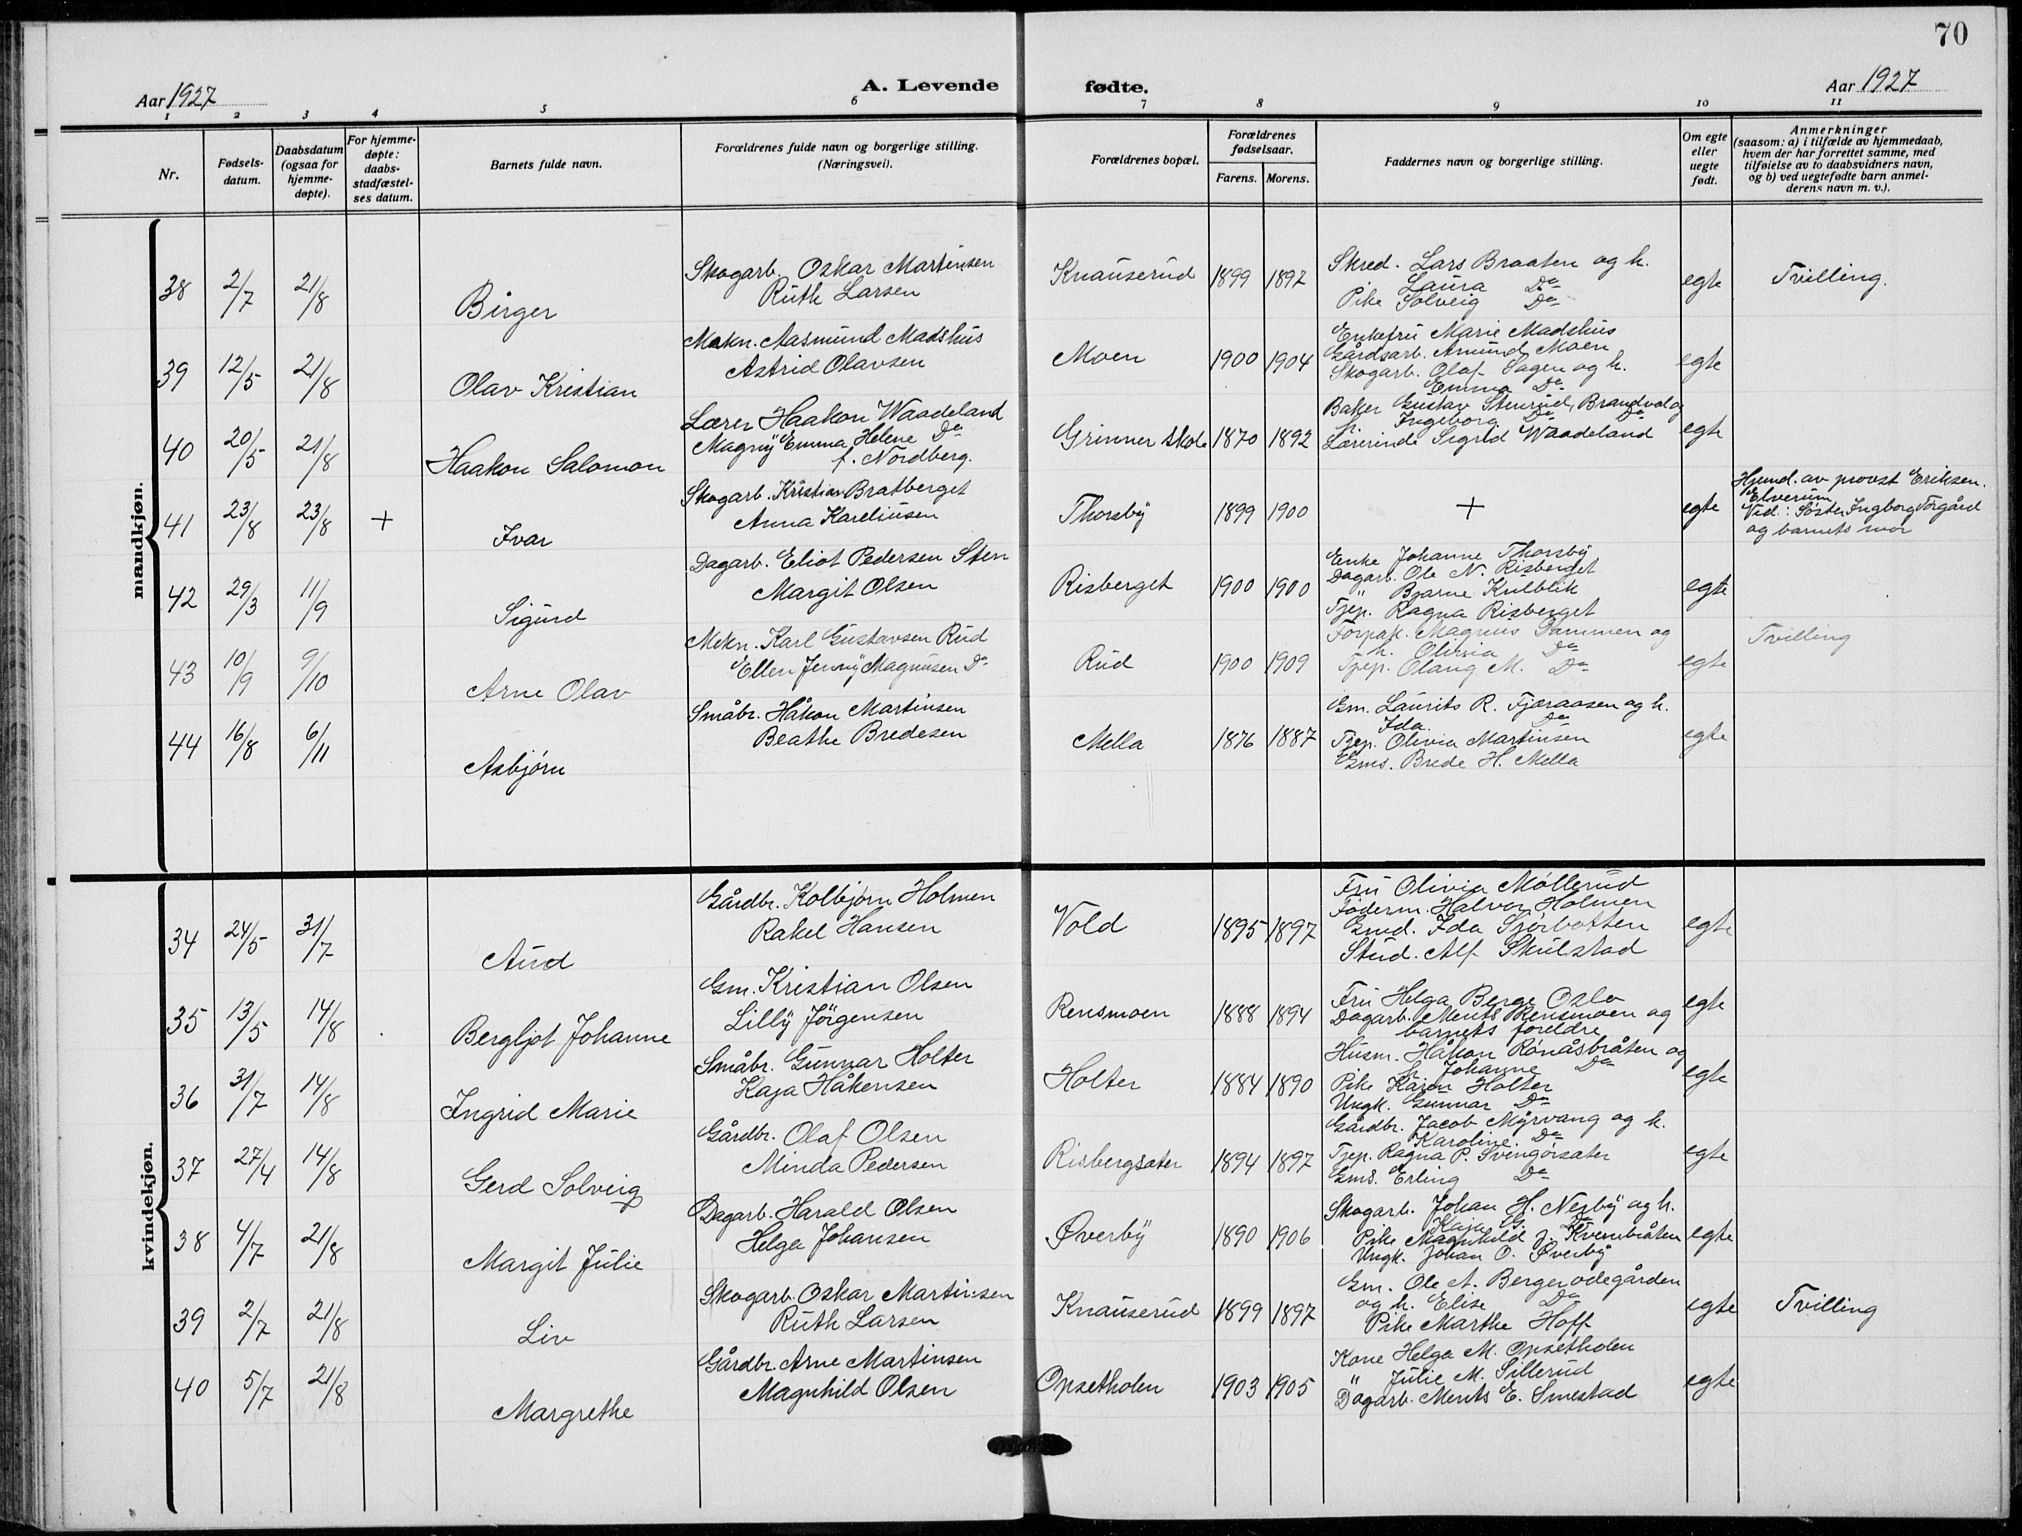 70
A. Levende fødte.
Aar 1927
Aar 1927
1 2 3 4 5 6 7 8 9 10 11
Nr.
Fødsels-datum.
Daabsdatum (ogsaa for hjemme-døpte).
For hjemme-døpte: daabs-stadfæstel-ses datum.
Barnets fulde navn.
Forældrenes fulde navn og borgerlige stilling. (Næringsvei).
Forældrenes bopæl.
Forældrenes fødselsaar.
Farens. Morens.
Faddernes navn og borgerlige stilling.
Om egte eller uegte født.
Anmerkninger (saasom: a) i tilfælde av hjemmedaab, hvem der har forrettet samme, med tilføielse av to daabsvidners navn, og b) ved uegtefødte barn anmel-derens navn m. v.).
mandkjøn.
38 2/7 21/8 Birger
Skogarb. Oskar Martinsen
Ruth Larsen
Knauserud 1899 1897
Skred. Lars Braaten og h.
Laura Do
Pike Solveig Do
egte Tvilling.
39 12/5 21/8 Olav Kristian
Mekn. Aasmund Madshus
Astrid Olavsen
Moen 1900 1904
Enkefru Marie Madshus
Gårdsarb. Amund Moen
Skogarb. Olaf Sagen og h.
Emma Do
egte
40 20/5 21/8 Haakon Salomon
Lærer Haakon Waadeland
Magny Emma Helene Do
f. Nordberg.
Grinner skole 1870 1892
Baker Gustav Stenrud, Brandval og
h. Ingeborg Do Do
Lærerinde Sigrid Waadeland
egte
41 23/8 23/8 + Ivar
Skogarb. Kristian Bratberget
Anna Kareliusen
Thorsby 1899 1900
+
egte
Hjemd. av provst Eriksen.
Elverum
Vid: Søster Ingborg Torgård
og barnets mor
42 29/3 11/9 Sigurd
Dagarb. Eliot Pedersen Sten
Margit Olsen
Risberget 1900 1900
Enke Johanne Thorsby
Dagarb. Ole N. Risberget
" Bjarne Kulblik
Tjep. Ragna Risberget
egte
43 10/9 9/10 Arne Olav
Mekn. Karl Gustavsen Rud
Ellen Jenny Magnusen Do
Rud 1900 1909
Forpak. Magnus Dammen og
h. Olivia Do
Tjep. Olaug M. Do
egte Tvilling
44 16/8 6/11 Asbjørn
Småbr. Håkon Martinsen
Beathe Bredesen
Mella 1876 1887
Gm. Laurits R. Fjæraasen og h.
Ida Do
Tjep. Olivia Martinsen
Gms. Brede H. Mella
egte
kvindekjøn.
34 24/5 31/7 Aud
Gårdbr. Kolbjørn Holmen
Rakel Hansen
Vold 1895 1897
Fru Olivia Møllerud
Føderm. Halvor Holmen
Gmd. Ida Sjørbotten
Stud. Alf Skulstad
egte
35 13/5 14/8 Bergljot Johanne
Gm. Kristian Olsen
Lilly Jörgensen
Rensmoen 1888 1894
Fru Helga Berge Oslo
Dagarb. Ments Rensmoen og
barnets foreldre
egte
36 31/7 14/8 Ingrid Marie
Småbr. Gunnar Holter
Kaja Håkensen
Holter 1884 1890
Husm. Håkon Rönåsbråten og
h. Johanne Do
Pike Karen Holter
Ungk. Gunnar Do
egte
37 27/4 14/8 Gerd Solveig
Gårdbr. Olaf Olsen
Minda Pedersen
Risbergsæter 1894 1897
Gårdbr. Jacob Myrvang og h.
Karoline Do
Tjep. Ragna P. Svengørsæter
Gms. Erling Do
egte
38 4/7 21/8 Margit Julie
Dagarb. Harald Olsen
Helga Johansen
Øverby 1890 1906
Skogarb. Johan H. Nesby og h.
Kaja G. Do
Pike Magnhild J. Kvernbråten
Ungk. Johan O. Øverby
egte
39 2/7 21/8 Liv
Skogarb. Oskar Martinsen
Ruth Larsen
Knauserud 1899 1897
Gm. Ole A. Bergerødegården
og h. Elise Do
Pike Marthe Hoff
egte Tvilling
40 5/7 21/8 Margrethe
Gårdbr. Arne Martinsen
Magnhild Olsen
Opsetholen 1903 1905
Kone Helga M. Opsetholen
" Julie M. Sillerud
Dagarb. Ments E. Smestad
egte